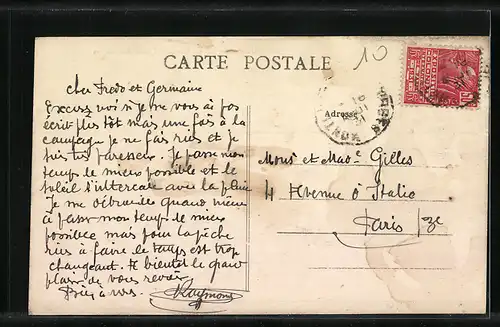 CARTE POSTALE
10
Adresse
cher Fredo et Germaine
Excusez moi si je ne vous ai pas
écrit plus tôt mais une fois à la
campagne je ne fais rien et je
suis très paresseux. Je passe mon
temps le mieux possible et le
soleil s'intercale avec la pluie
Je me débrouille quand même
à passer mon temps le mieux
possible mais pour la pêche
rien à faire le temps est trop
changeant. A bientôt le grand
plaisir de vous revoir
Bien à vous. Raymond
Mons et Made Gilles
4 Avenue d'Italie
Paris 13e